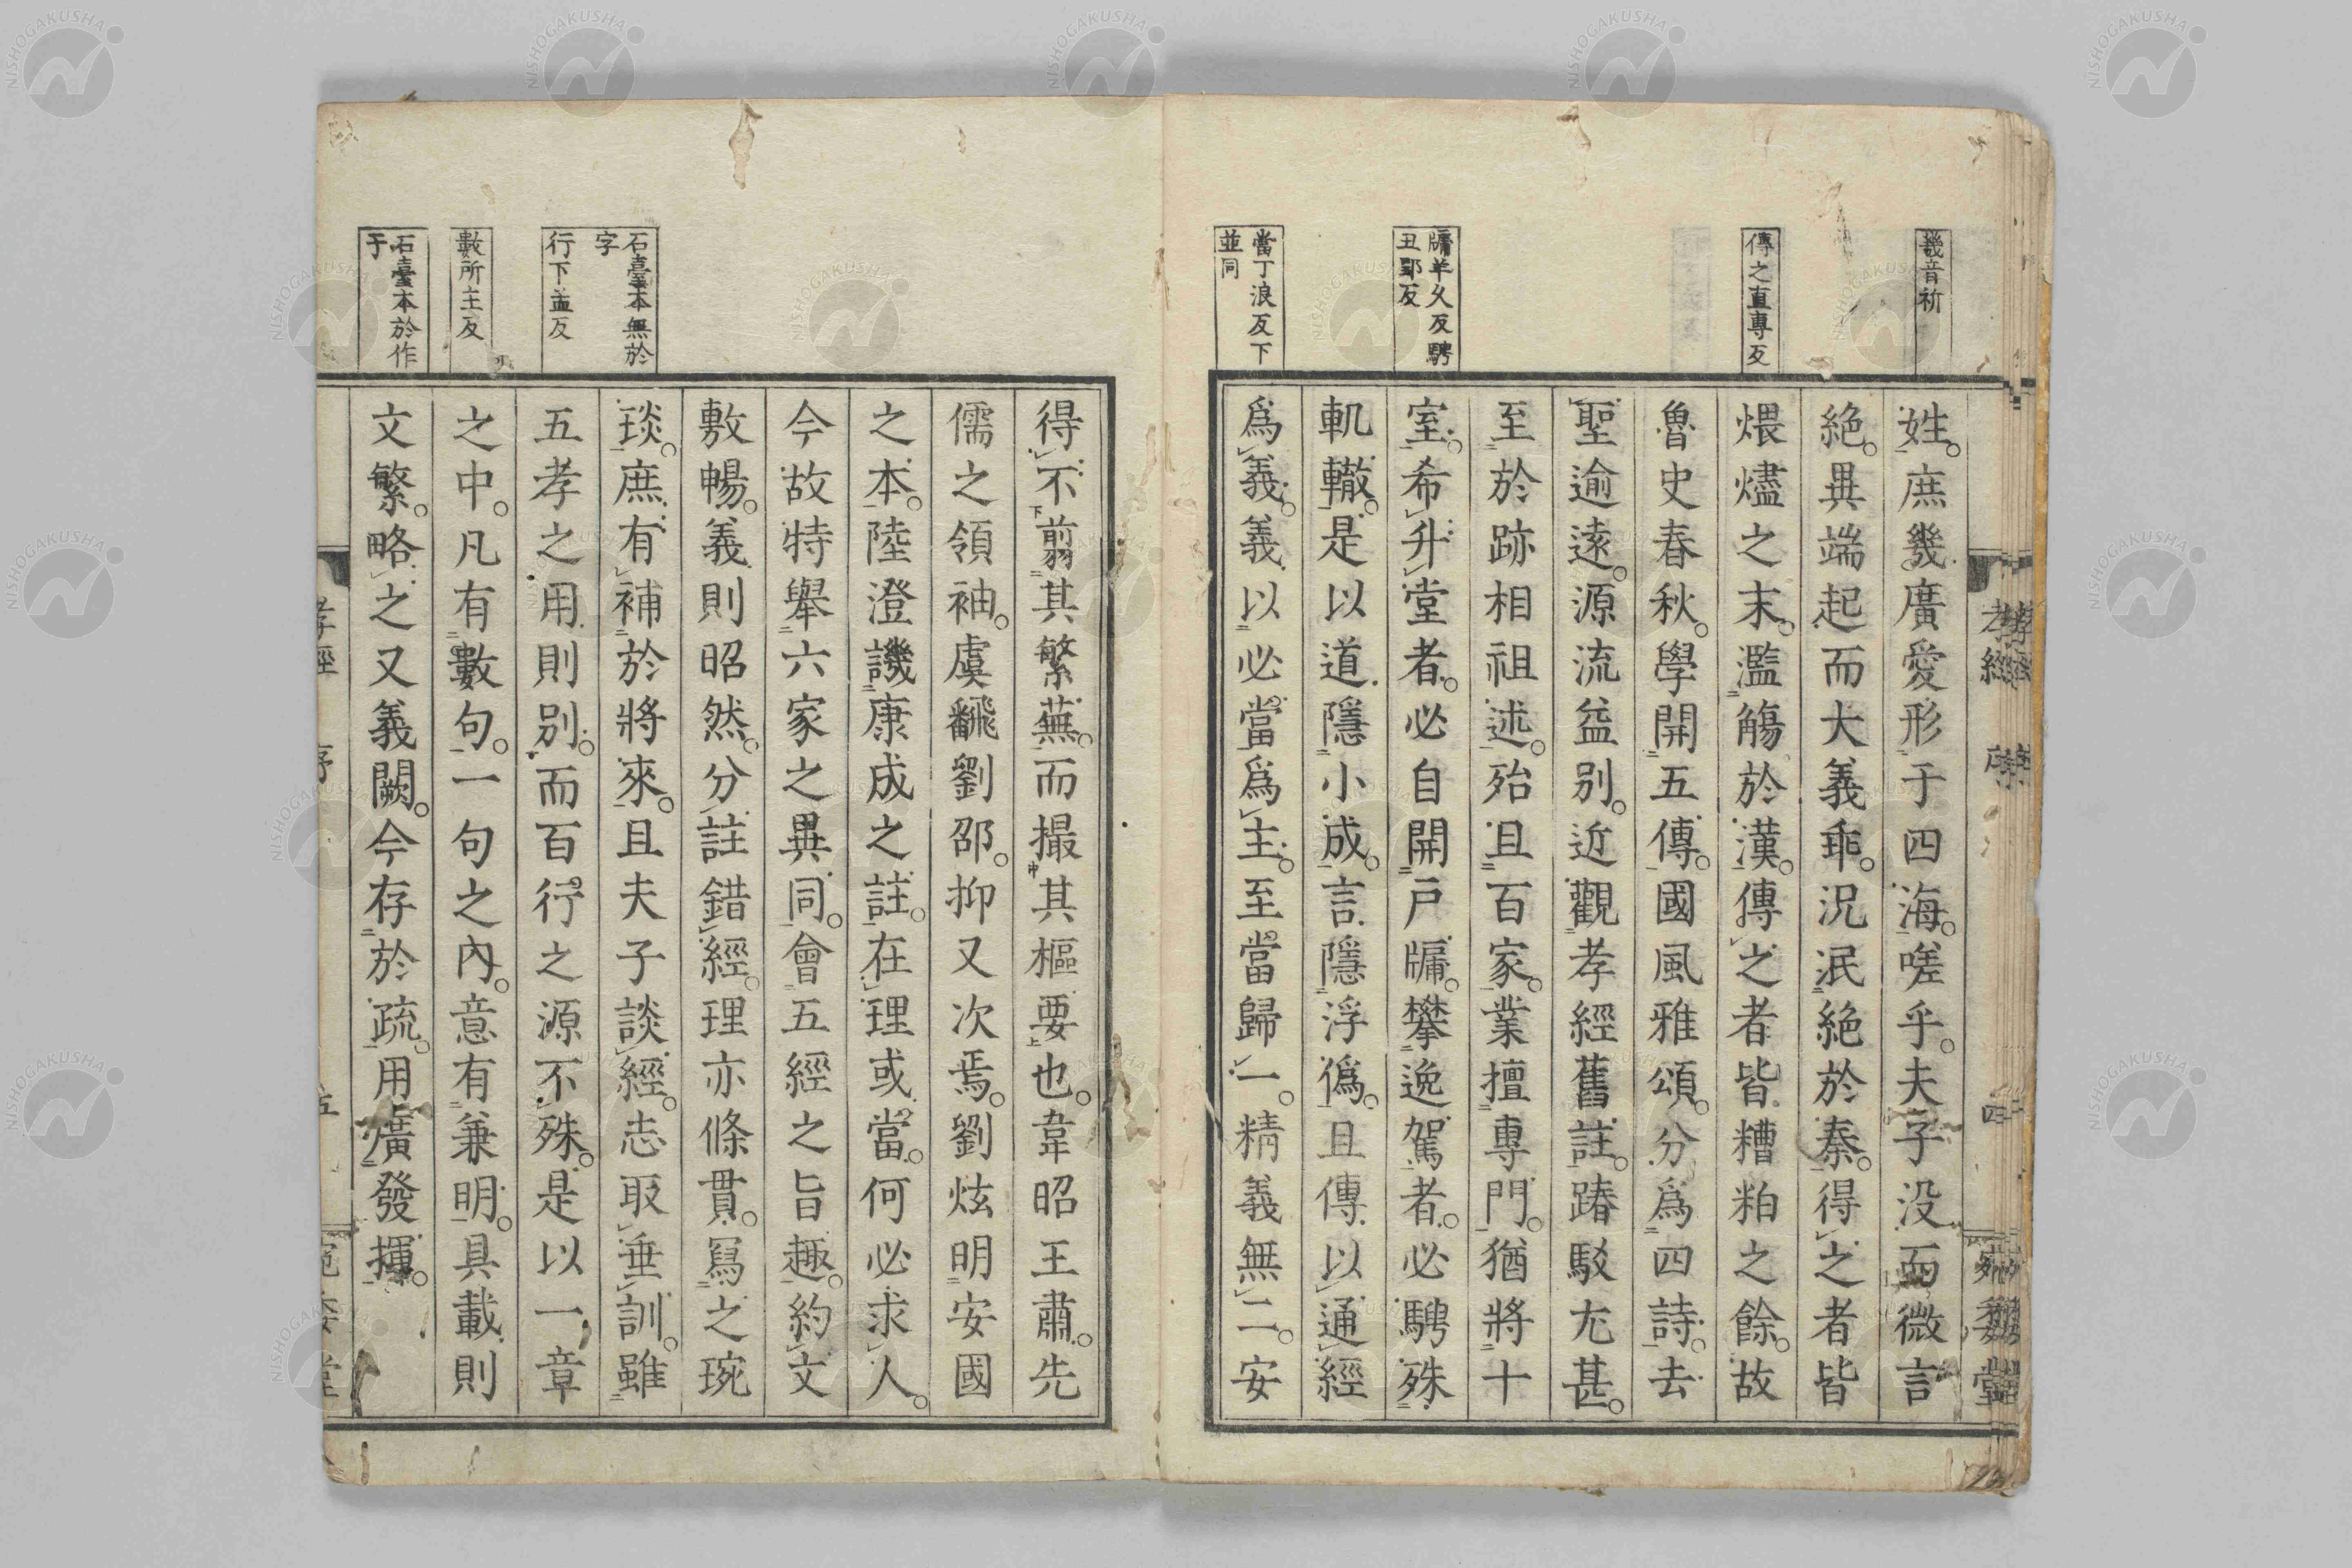 幾音祈
傳之直專反
牖羊久反騁
丑郢反
當丁浪反下
並同
姓。庶幾廣愛形于四海。嗟乎。夫子没而微言
絶。異端起而大義乖。況泯絶於秦。得之者皆
煨燼之末。濫觴於漢。傳之者皆糟粕之餘。故
魯史春秋。學開五傳。國風雅頌。分爲四詩。去
聖逾遠。源流益別。近觀孝經舊註。踳駁尤甚。
至於跡相祖述。殆且百家。業擅專門。猶將十
室。希升堂者。必自開戸牖。攀逸駕者。必騁殊
軌轍。是以道隱小成。言隱浮僞。且傳以通經
爲義。義以必當爲主。至當歸一。精義無二。安
石臺本無於
字
行下孟反
數所主反
石臺本於作
于
得不翦其繁蕪。而撮其樞要也。韋昭王肅。先
儒之領袖。虞飜劉邵。抑又次焉。劉炫明安國
之本。陸澄譏康成之註。在理或當。何必求人。
今故特舉六家之異同。會五經之旨趣。約文
敷暢。義則昭然。分註錯經。理亦條貫。寫之琬
琰。庶有補於將來。且夫子談經。志取垂訓。雖
五孝之用則別。而百行之源不殊。是以一章
之中。凡有數句。一句之內。意有兼明。具載則
文繁。略之又義闕。今存於疏。用廣發揮。
孝經
序
NISHOGAKUSHA